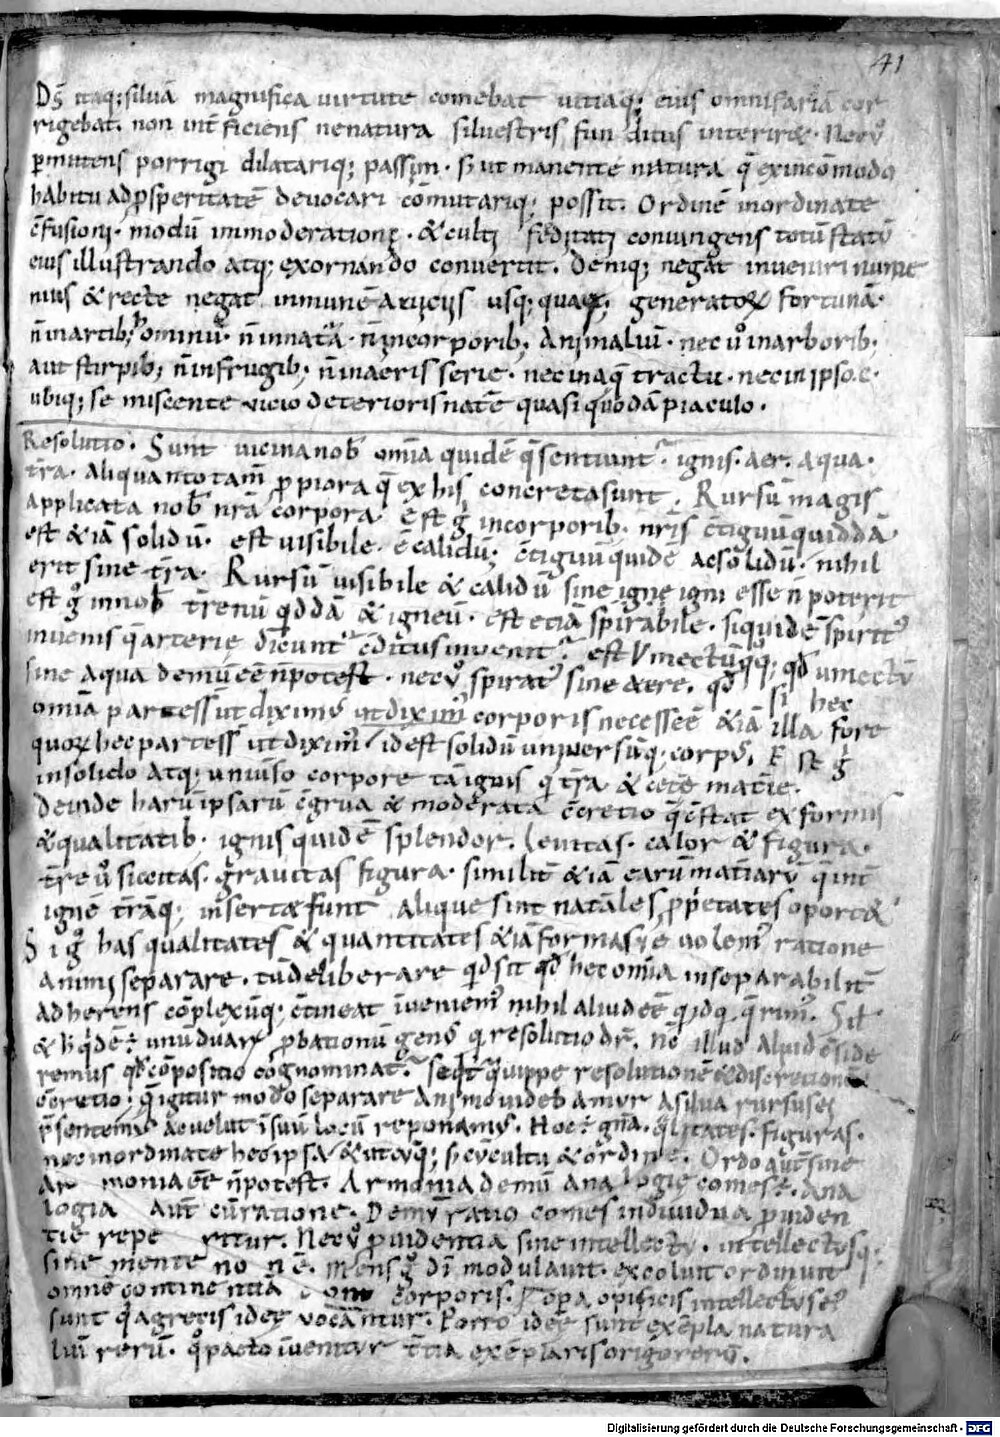 41
Ds̄ itaq; siluā magnifica uirtute comebat uitiaq; eius omnifariā cor
rigebat. non int̄ficiens nenatura siluestris funditus interiret. Necͧ
p̄mittens porrigi dilatariq; passim. sꝫ ut manente natura q̄ exincōmodo
habitu adp̱speritatē deuocari cōmutariq; possit. Ordinē inordinate
c̄fusioni. modū immoderationi. & cultꝫ feditati coniungens totū statū
eius illustrando atq; exornando conuertit. Deniq; negat inueniri nume
nius & recte negat inmunē a uicijs usq; quaq; generatoꝝ fortunā.
n̄ inartib; hominū. n̄ innatᷓa. n̄ incorporib; Animaliū. nec ů inarborib;
aut stirpib; n̄ infrugib; n̄ inaeris serie. nec inaq̄ tractu. nec in ipso.c.
ubiq; se miscente uicio deterioris natͤ quasi quodā piaculo.
Resolutio. Sunt uicina nob̄ omīa quidē q̄ sentiunt᷑. ignis. aer. aqua.
tr̄a. aliquanto tam̄ p̱piora q̄ ex his concreta sunt. Rursū magis
applicata nob̄ nr̄a corpora. Est g͛ incorporib; nr̄is c̄tiguū quiddā.
est & iā solidū. est uisibile. ē calidū; c̄tiguū quidē ac solidū. nihil
erit sine tr̄a. Rursū uisibile & calidū sine igne igni esse n̄ poterit
est g͛ in nob̄ tr̄enū q̱ddā & igneū. est etiā spirabile. siquidē spiritꝰ
inuenis q̄ arterie dicunt᷑ c̄ditus inuenit᷑. est Vmectūq̱q̱; qd̄ umectū
sine aqua demū eē n̄ potest. necͧ spiratꝰ sine aere. qd̄ si hec
omīa partes s̄t ut diximꝰ ut diximꝰ corporis necesse ē & iā illa fore
quoꝝ hec partes s̄t ut diximꝰ / id est solidū uniuersūq; corpꝰ. Est g͛
insolido atq; uniuso corpore tā ignis q̄ tr̄a & cetē matīe.
deinde harū ipsarū c̄grua & moderata c̄cretio q̄ c̄stat ex formis
& qualitatib; ignis quidē splendor. leuitas. calor & figura.
tr̄e ů siccitas. grauitas figura. similit̄ & iā earū matīarū q̄ int̄
ignē tr̄āq; insertae sunt alique sint natāles p̱prietates oportet
Si g͛ has qualitates & quantitates & iā formas uolemꝰ ratione
animi separare. tū deliberare qd̄ sit qd̄ hec omīa inseparabilit̄
adherens cōplexūq; c̄tineat īueniemꝰ nihil aliud eē q̄ idq̱. q̄rimꝰ. Sil.
& h̄ q̱dē: unū duaꝝ p̱bationū genꝰ q̱ resolutio dr̄. Nc̄ illud aliud c̄side
remus qd̄ cōpositio cognominat᷑. seqt᷑ quippe resolutionē & discretionē
c̄cretio: Quigitur modo separare animo uidebamur a silua rursus ei
p̄sentemꝰ ac uelut ī suū locū reponamꝰ. Hoc ē gn̄a. q̄litates. figuras.
nec inordinate hec ipsa & utcūq; sꝫ c̄ cultu & ordine. Ordo aūt sine
ar monia eē n̄ potest. Armonia demū analogie comes ē. Ana
logia aūt cū ratione. Demū ratio comes indiuidua p̱uiden
tie repe ritur. Necͧ p̱uidentia sine intellectu. intellectusq;
sine mente no n ē. mens g͛ dī modulauit. excoluit ordinauit
omnē continentiā corporis. opa opificis intellectus ei
sunt q̄ a grecis idee vocantur. Porro idee sunt exēpla natura
liū rerū. q̱ pacto īuenitur t̄tia exēplaris origo rerū.
Digitalisierung gefördert durch die Deutsche Forschungsgemeinschaft - DFG